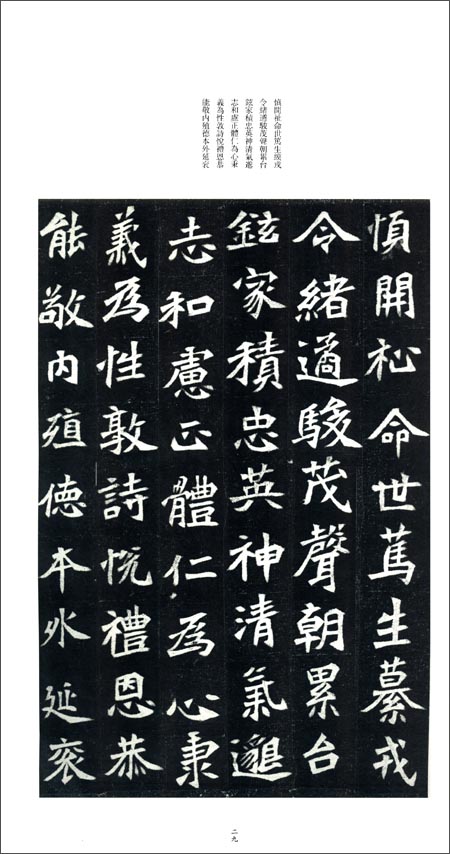 慎開祉命世篤生纂戎
令緒遹駿茂聲朝累台
鉉家積忠英神清氣邈
志和慮正體仁為心秉
義為性敦詩悅禮恩恭
能敬內殖德本外延袞
慎開祉命世篤生纂戎
令緒遹駿茂聲朝累台
鉉家積忠英神清氣邈
志和慮正體仁為心秉
義為性敦詩悅禮恩恭
能敬內殖德本外延袞
二九